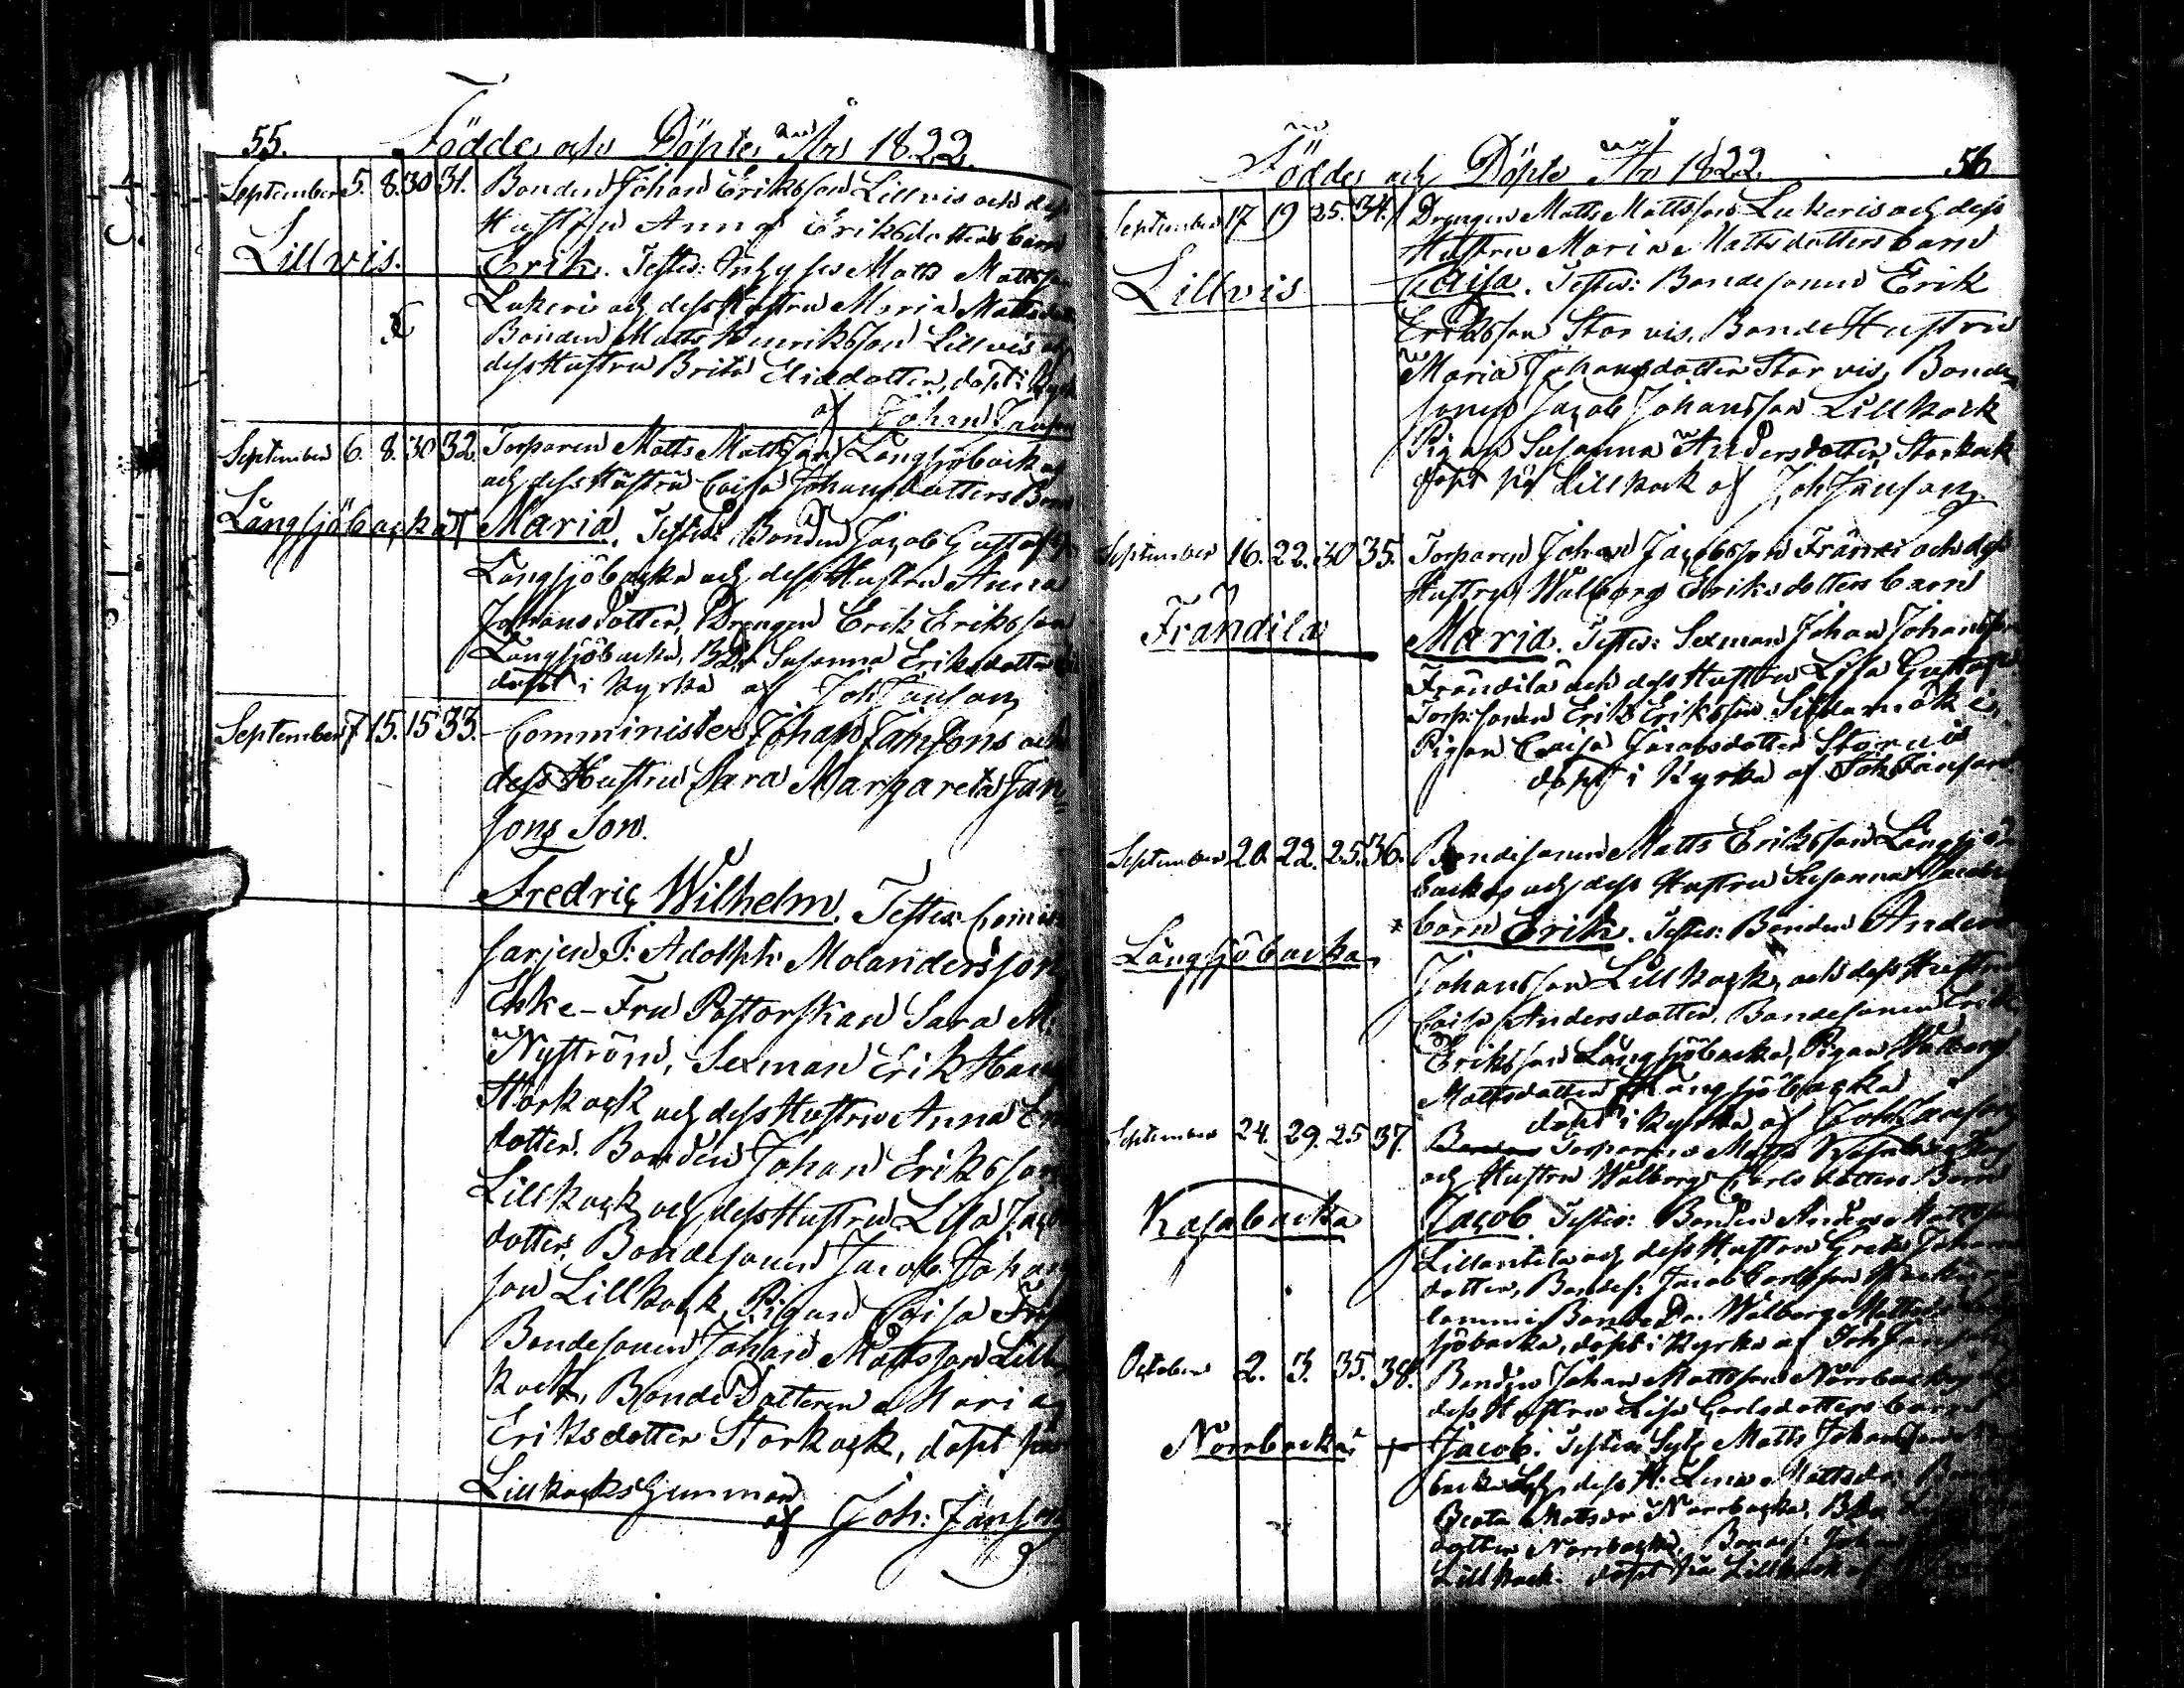 55. Födde och Döpte år 1822.
September 5. 8. 30 31. Bonden Johan Eriksson Lillvis och dess
Hustru Anna Eriksdotters barn
Lillvis.
Erik. Testes: Inhyses Matts Mattsson
Lukeri och dess Hustru Maria Mattsdotter
Bonden Matts Henriksson Lillvis och
dess Hustru Brita Eliædotter, döpt i Kyrk
af Johan Janson
September 6. 8. 30 32. Torparen Matts Mattsson Långsjöbacka
och dess Hustru Caisa Johansdotters Barn
Långsjöbacka
Maria. Testes: Bonden Jacob Gustafsson
Långsjöbacka och dess Hustru Anna
Johansdotter, Drengen Erik Eriksson
Långsjöbacka, Susanna Eriksdotter
döpt i Kyrka af Joh Janson
September 7 15. 15 33. Comminister Johan Jansons och
dess Hustru Sara Margareta Jan=
sons Son.
Fredric Wilhelm. Testes: Comis=
sarjen J: Adolph Molandersson
Enke-Fru Pastorskan Sara M:
Nyström, Sexman Erik Hans
Storkack och dess Hustru Anna Eriks
dotter. Bonden Johan Eriksson
Lillkack och dess Hustru Lisa Jacobs
dotter. Bondesonen Jacob Johans
son Lillkack, Pigan Caisa
Bondesonen Johan Mattsson Lill
kack, Bonde Dotteren Maria
Eriksdotter Storkack, döpt på
Lillkacks
af Joh: Janson
Födde och Döpte år 1822. 56
September 17 19 25. 34. Drengen Matts Mattsson Lukeris och dess
Hustru Maria Mattsdotters barn
Lillvis
Caisa. Testes: Bondesonen Erik
Eriksson Storvis, Bonde Hustrun
Maria Johansdotter Storvis, Bonde=
sonen Jacob Johansson Lillkack
Pigan Susanna Andersdotter Storkack
döpt på Lillkack af Joh Janson
September 16. 22. 30 35. Torparen Johan Jacobsson Fränti och dess
Hustru Walborg Eriksdotters barn
Frändila
Maria. Testes: Sexman Johan Johansson
Frändila och dess Hustru Lisa Gustafs
Torp: sonen Erik Eriksson
Pigan Caisa Jacobsdotter Storvis
döpt i Kyrka af Joh Janson
September 20. 22. 25. 36. Bondesonen Matts Eriksson Långsjö
backa och dess Hustru Susanna Jacobs
Långsjöbacka
barn Erik. Testes: Bonden Anders
Johansson Lillkack och dess Hustru
Caisa Andersdotter, Bondesonen Erik
Eriksson Långsjöbacka, Pigan Walborg
Mattsdotter Långsjöbacka
döpt i Kyrka af Joh Janson
September 24. 29. 25 37. Torparen Matts
och Hustru Walborg Carlsdotters Barn
Kasabacka
Jacob. Testes: Bonden Anders Mattsson
Lillantila och dess Hustru Greta Johans
dotter, Bondes: Jacob Carlsson
Bonde Do. Walborg Mattsd
sjöbacka, döpt i Kyrka af Joh Janson
October 2. 3. 35. 38. Bonden Johan Mattsson Norrbacka och
dess Hustru Lisa Carlsdotters barn
Norrbacka
Jacob. Testes: Matts Johansson
backa och dess H: Mattsdr
Beata Mattsdr Norrbacka,
dotter Norrbacka, Bondes: Joh
Lillkack. döpt på Lillkack af